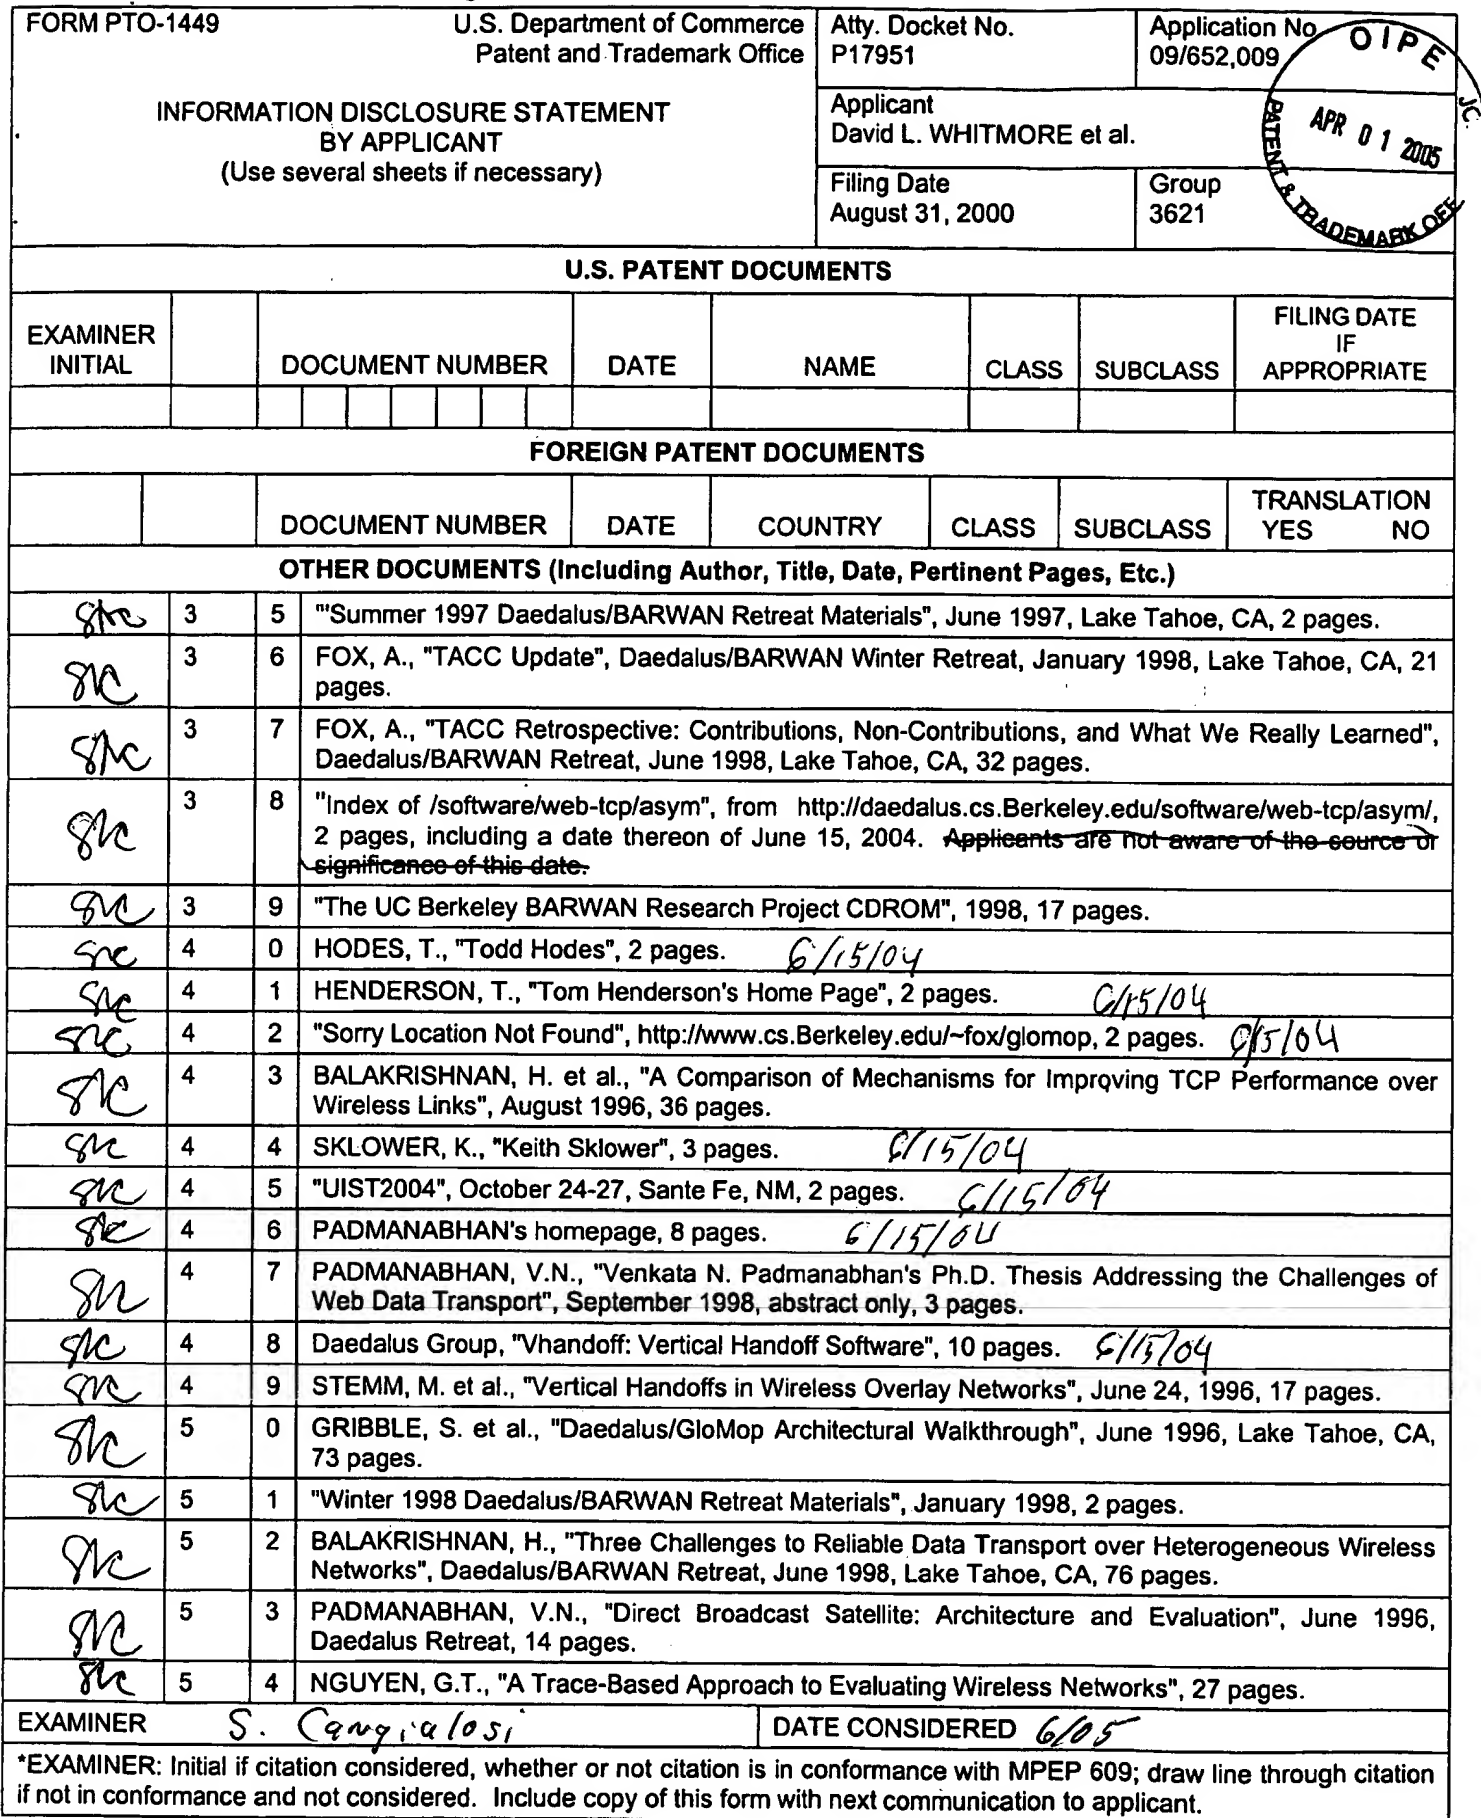 FORM PTO-1449
U.S. Department of Commerce
Patent and Trademark Office
INFORMATION DISCLOSURE STATEMENT
BY APPLICANT
(Use several sheets if necessary)
Atty. Docket No.
P17951
Application No
09/652,009
Applicant
David L. WHITMORE et al.
Filing Date
August 31, 2000
Group
3621
OIPE
JC.
APR 01 2005
PATENT & TRADEMARK OFF
U.S. PATENT DOCUMENTS
EXAMINER
INITIAL
DOCUMENT NUMBER
DATE
NAME
CLASS
SUBCLASS
FILING DATE
IF
APPROPRIATE
FOREIGN PATENT DOCUMENTS
DOCUMENT NUMBER
DATE
COUNTRY
CLASS
SUBCLASS
TRANSLATION
YES NO
OTHER DOCUMENTS (Including Author, Title, Date, Pertinent Pages, Etc.)
3 5 "'Summer 1997 Daedalus/BARWAN Retreat Materials", June 1997, Lake Tahoe, CA, 2 pages.
3 6 FOX, A., "TACC Update", Daedalus/BARWAN Winter Retreat, January 1998, Lake Tahoe, CA, 21
pages.
3 7 FOX, A., "TACC Retrospective: Contributions, Non-Contributions, and What We Really Learned",
Daedalus/BARWAN Retreat, June 1998, Lake Tahoe, CA, 32 pages.
3 8 "Index of /software/web-tcp/asym", from http://daedalus.cs.Berkeley.edu/software/web-tcp/asym/,
2 pages, including a date thereon of June 15, 2004. Applicants are not aware of the source or
significance of this date.
3 9 "The UC Berkeley BARWAN Research Project CDROM", 1998, 17 pages.
4 0 HODES, T., "Todd Hodes", 2 pages. 6/15/04
4 1 HENDERSON, T., "Tom Henderson's Home Page", 2 pages. 6/15/04
4 2 "Sorry Location Not Found", http://www.cs.Berkeley.edu/~fox/glomop, 2 pages. 6/15/04
4 3 BALAKRISHNAN, H. et al., "A Comparison of Mechanisms for Improving TCP Performance over
Wireless Links", August 1996, 36 pages.
4 4 SKLOWER, K., "Keith Sklower", 3 pages. 6/15/04
4 5 "UIST2004", October 24-27, Sante Fe, NM, 2 pages. 6/15/04
4 6 PADMANABHAN's homepage, 8 pages. 6/15/04
4 7 PADMANABHAN, V.N., "Venkata N. Padmanabhan's Ph.D. Thesis Addressing the Challenges of
Web Data Transport", September 1998, abstract only, 3 pages.
4 8 Daedalus Group, "Vhandoff: Vertical Handoff Software", 10 pages. 6/15/04
4 9 STEMM, M. et al., "Vertical Handoffs in Wireless Overlay Networks", June 24, 1996, 17 pages.
5 0 GRIBBLE, S. et al., "Daedalus/GloMop Architectural Walkthrough", June 1996, Lake Tahoe, CA,
73 pages.
5 1 "Winter 1998 Daedalus/BARWAN Retreat Materials", January 1998, 2 pages.
5 2 BALAKRISHNAN, H., "Three Challenges to Reliable Data Transport over Heterogeneous Wireless
Networks", Daedalus/BARWAN Retreat, June 1998, Lake Tahoe, CA, 76 pages.
5 3 PADMANABHAN, V.N., "Direct Broadcast Satellite: Architecture and Evaluation", June 1996,
Daedalus Retreat, 14 pages.
5 4 NGUYEN, G.T., "A Trace-Based Approach to Evaluating Wireless Networks", 27 pages.
EXAMINER S. Cangialosi
DATE CONSIDERED 6/05
*EXAMINER: Initial if citation considered, whether or not citation is in conformance with MPEP 609; draw line through citation
if not in conformance and not considered. Include copy of this form with next communication to applicant.